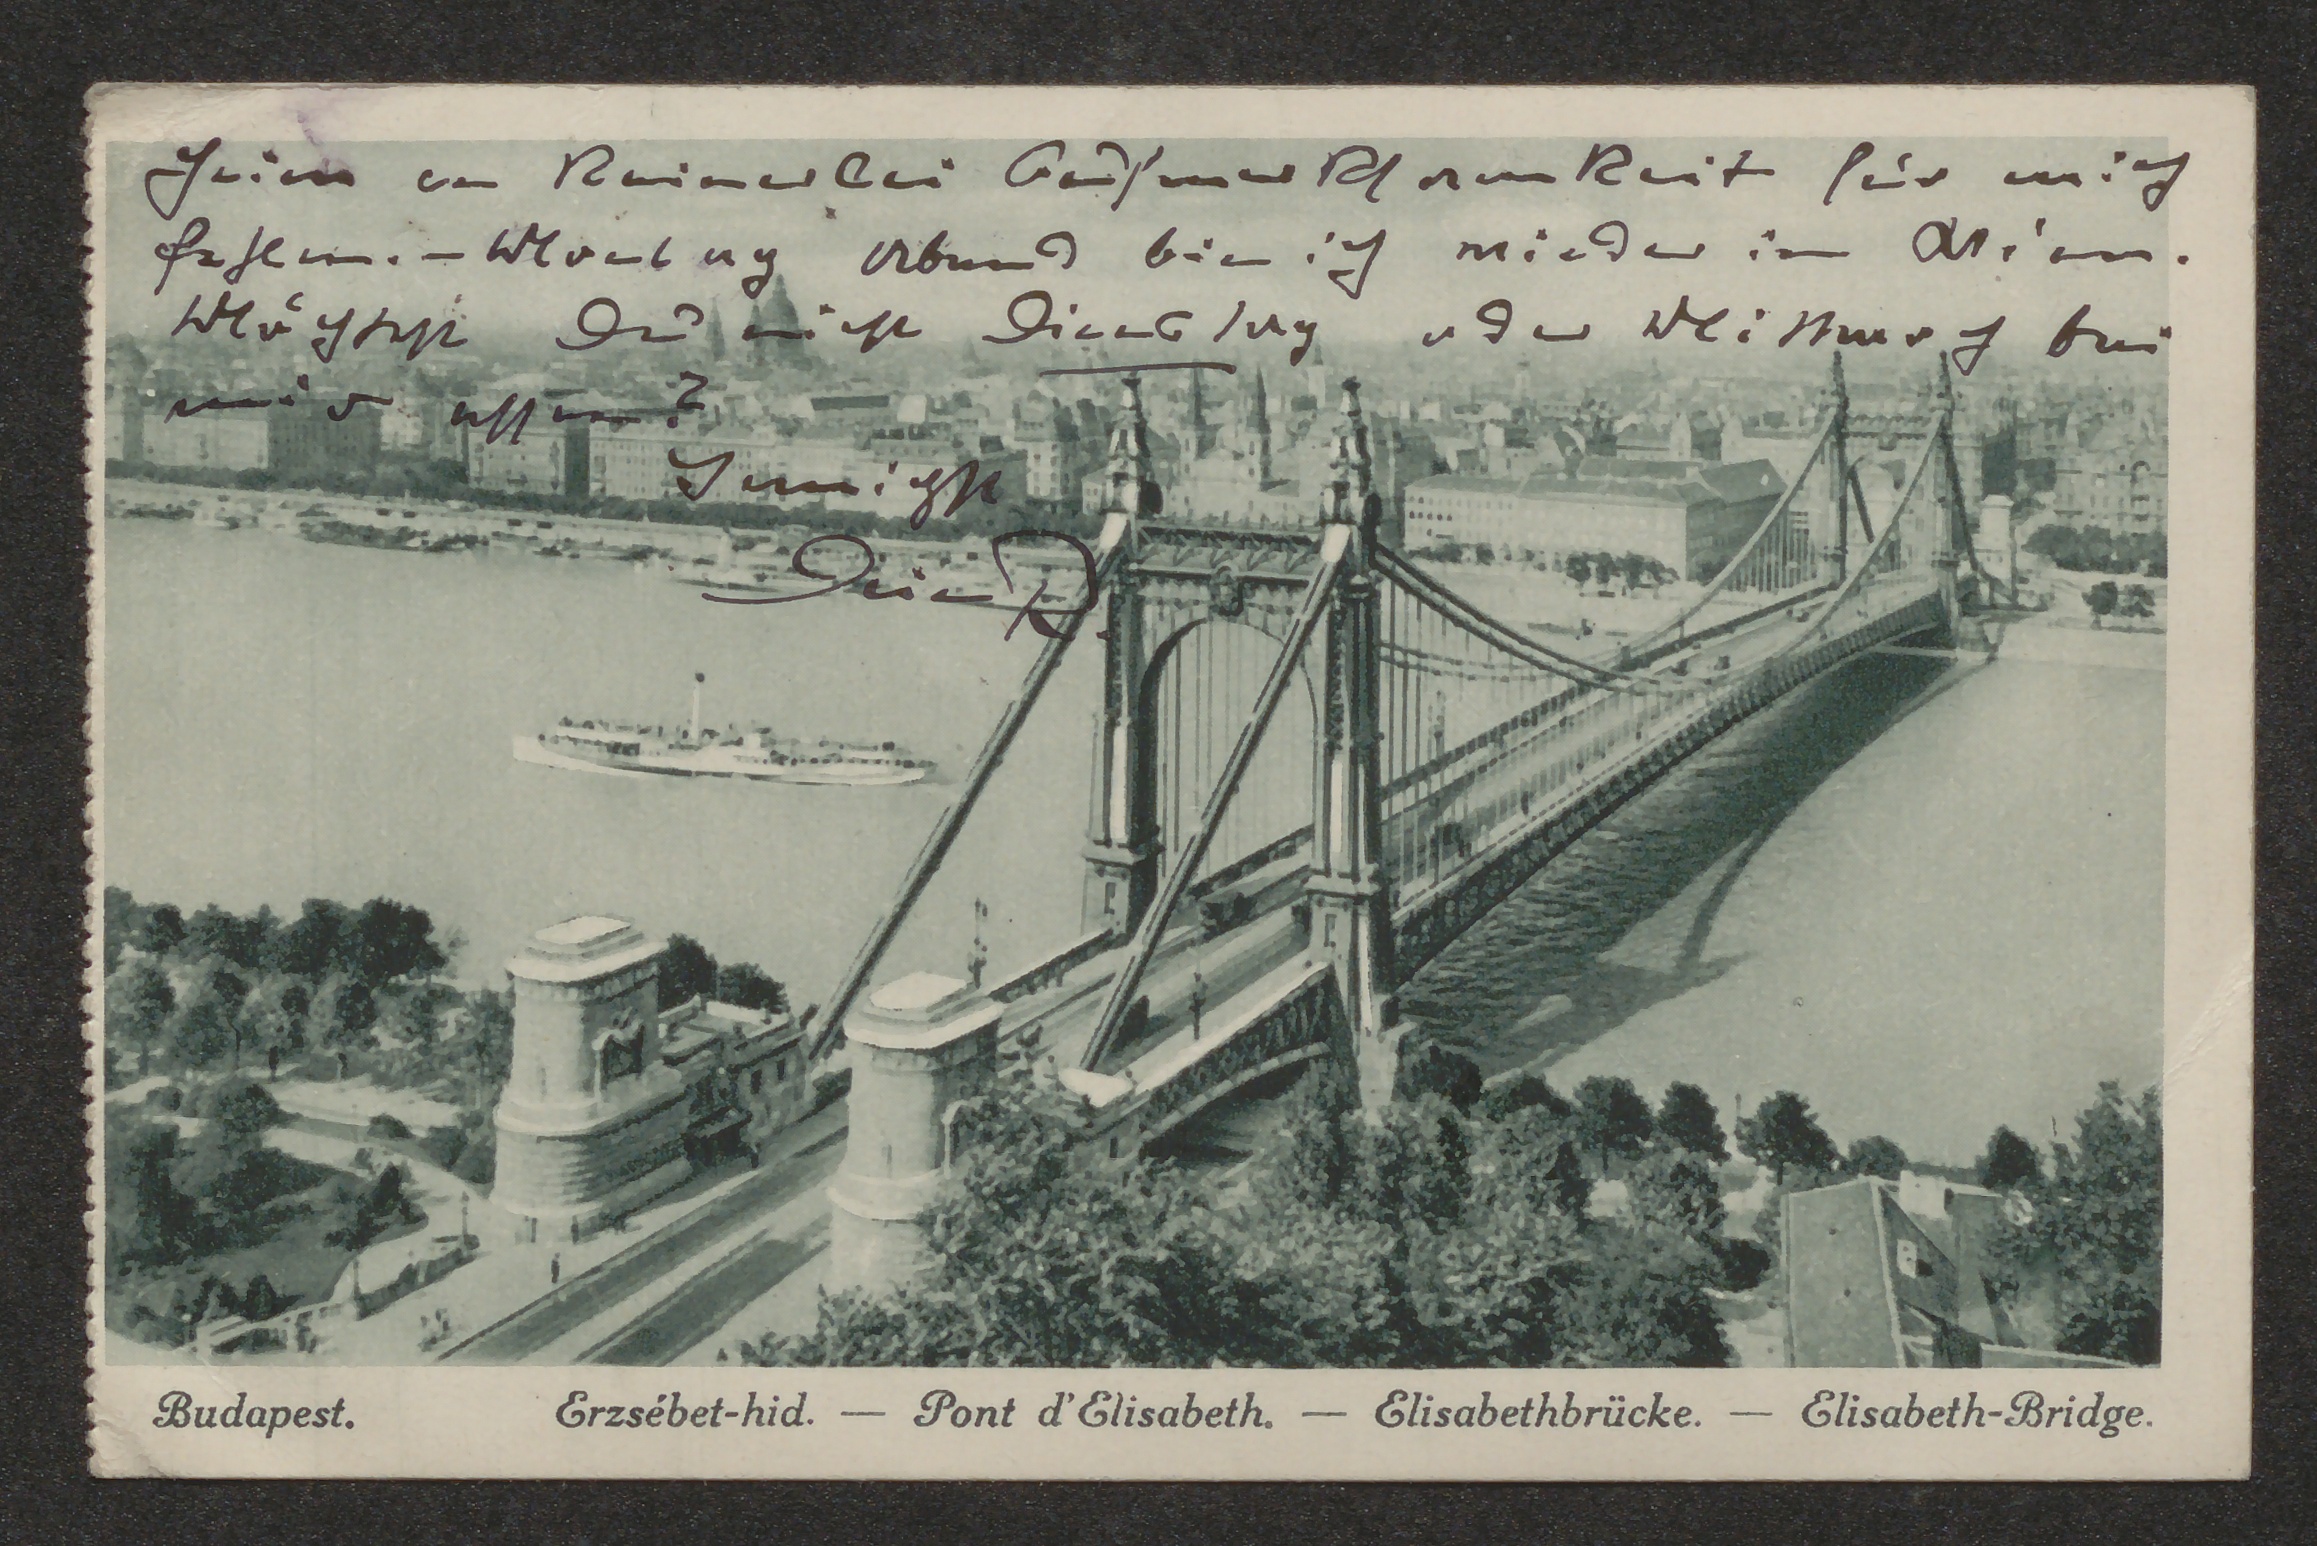 an keinerlei Aufmerksamkeit für mich
fehlen. – Montag Abend bin ich wieder in Wien.
Möchtest Du nicht Dienstag oder Mittwoch bei
mir essen?
Innigst
Dein R.
Budapest. Erzsébet-hid. — Pont d'Elisabeth. — Elisabethbrücke. — Elisabeth-Bridge.